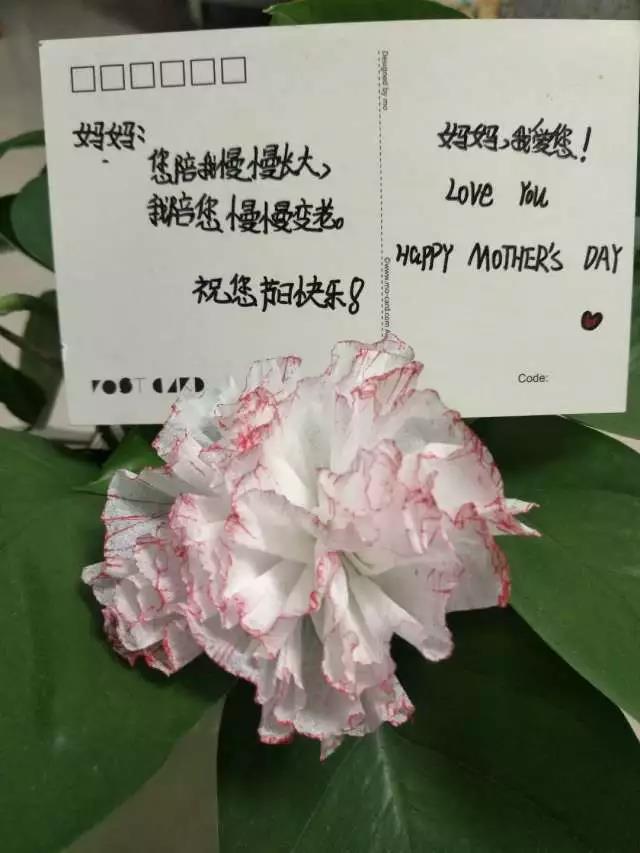 妈妈:
您陪我慢慢长大,
我陪您慢慢变老。
祝您节日快乐!
POST CARD
Designed by mo
妈妈,我爱您!
LOVE YOU
HAPPY MOTHER'S DAY
Code: